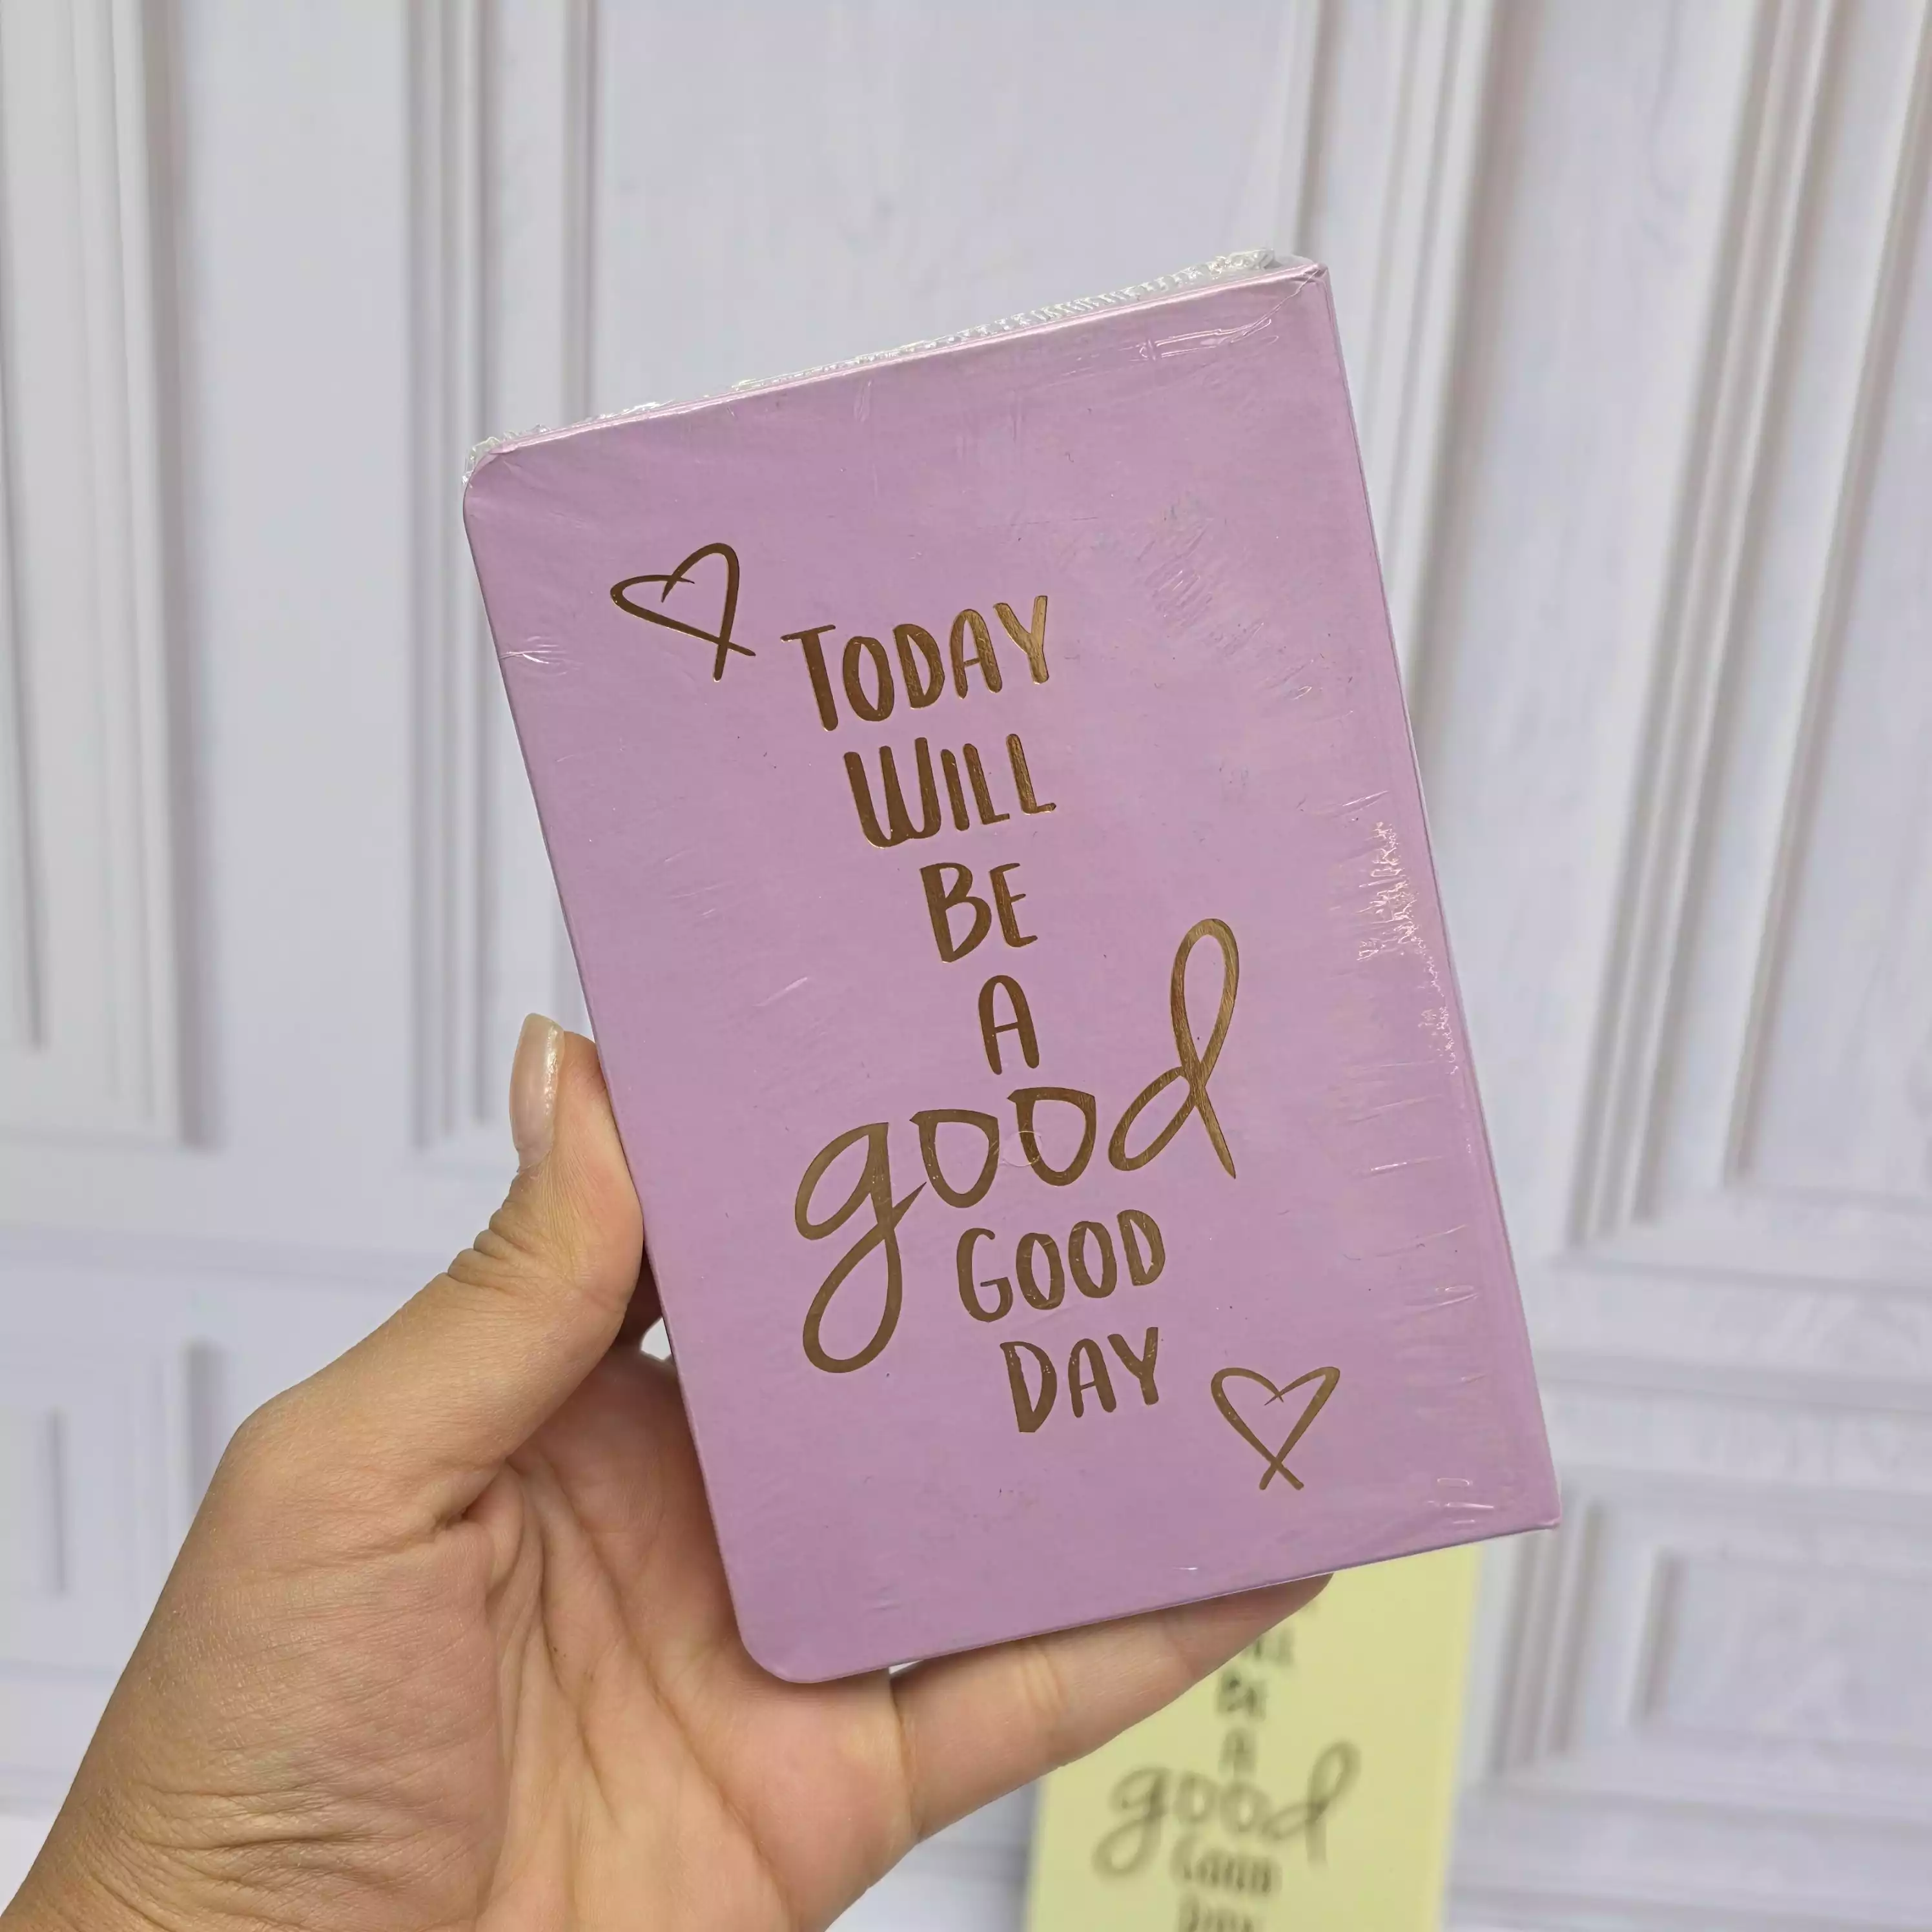 TODAY
WILL
BE
A
good
GOOD
DAY
BE
A
good
GOOD
DAY